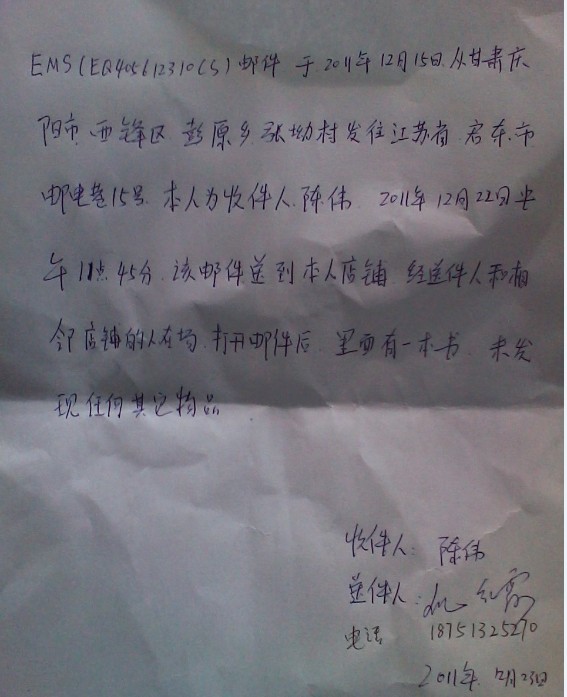 EMS(EQ405612310CS)邮件 于2011年12月15日.从甘肃庆
阳市.西锋区.彭原乡.张坳村发往江苏省.启东.市
邮电巷15号.本人为收件人.陈伟. 2011年12月22日上
午11点45分.该邮件送到本人店铺.经送件人和相
邻店铺的人在场.打开邮件后.里面有一本书.未发
现任何其它物品.
收件人: 陈伟
送件人:
电话 18751325270
2011年.12月23日